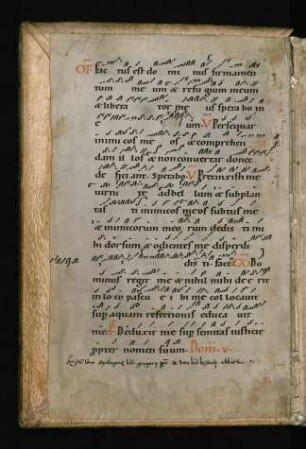 OF Fac tus est do mi nus firmamen
tum me um & refugium meum
& libera tor me us spera bo in
e um. V Persequar
inimi cos me os & comprehen
dam illos & non convertar donec
de fici ant. Sperabo. V Precinxisti me
virtu te ad bel lum & subplan
tas ti inimicos meos subtus me
& inimicorum meo rum dedis ti mi
hi dorsum & odientes me disperdi
dis ti. Factus CO Do
minus regit me & nihil mihi de e rit
in loco pascu e i bi me col locavit
sup aquam refectionis educa vit
me. Deduxit me sup semitas iusticie
ppter nomen suum. Dom. v.